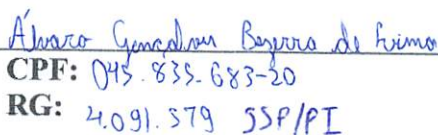 Álvaro Gonçalves Bezerra de Lima
CPF: 045.835.683-20
RG: 4.091.579 SSP/PI